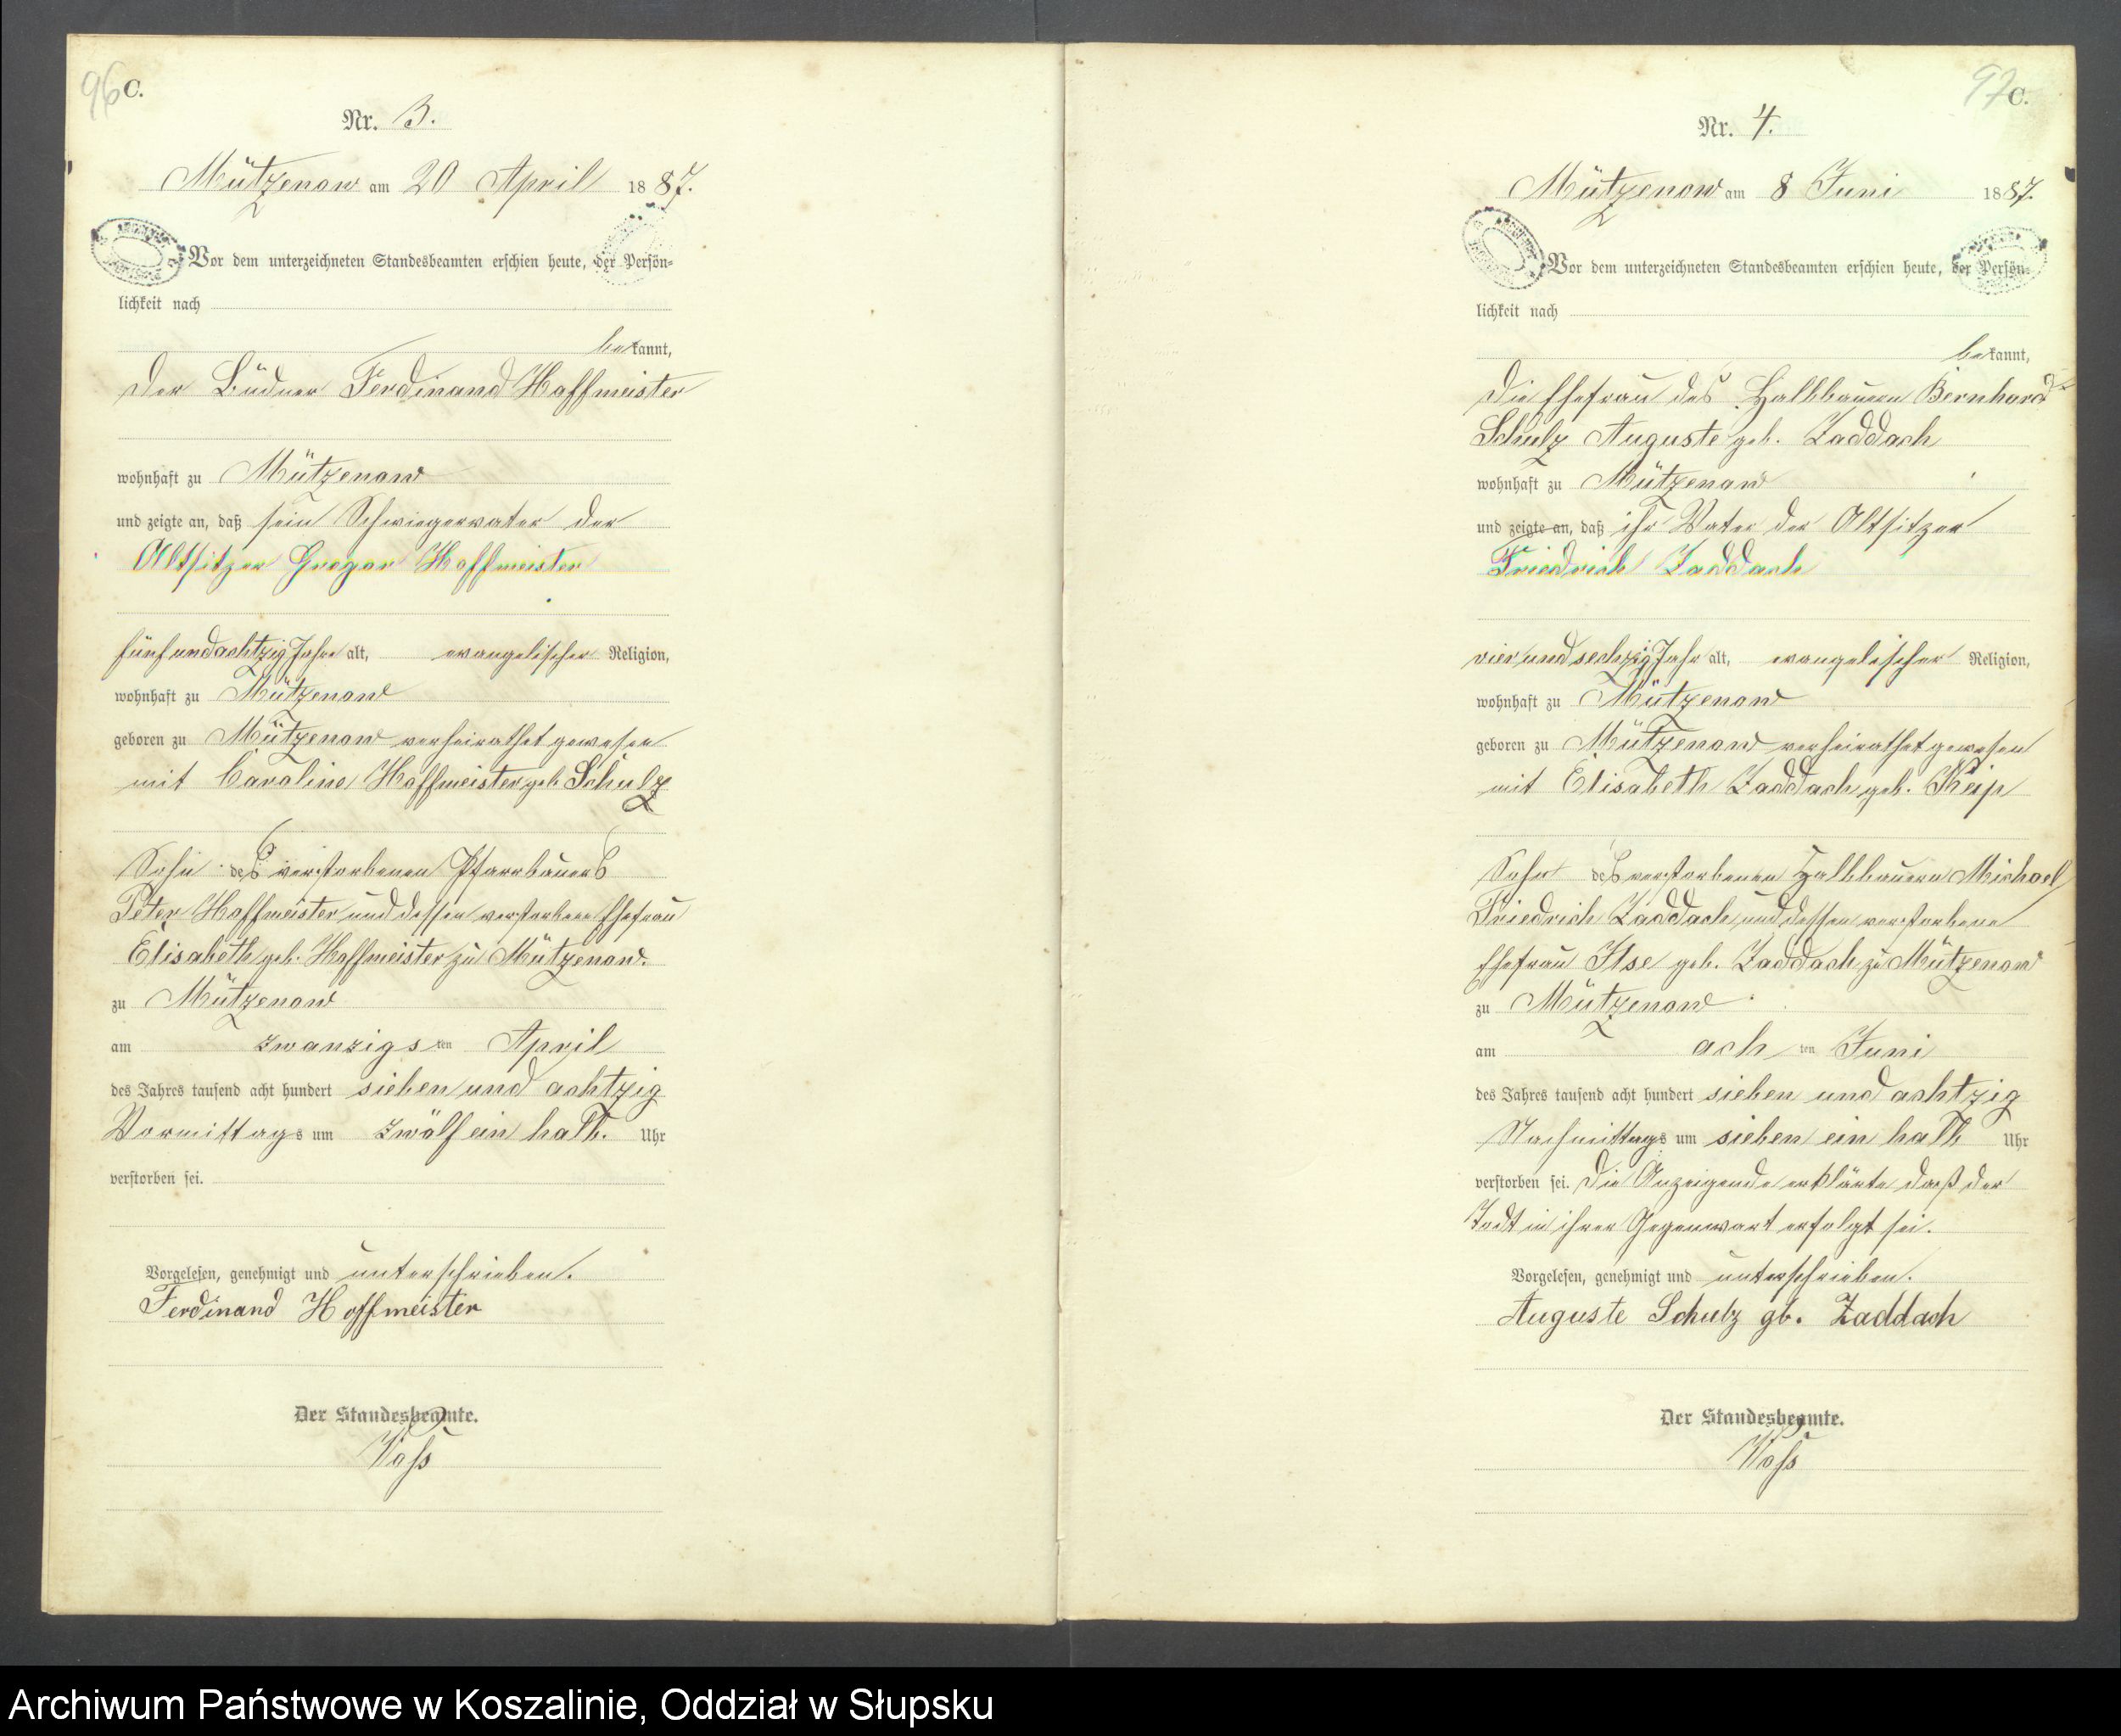 96 C.
Nr. 3.
Mützenow am 20 April 1887.
Vor dem unterzeichneten Standesbeamten erschien heute, der Persön-
lichkeit nach
bekannt,
der Büdner Ferdinand Hoffmeister
wohnhaft zu Mützenow
und zeigte an, daß sein Schwiegervater der
Altsitzer Gregor Hoffmeister
fünf und achtzig Jahre alt, evangelischer Religion,
wohnhaft zu Mützenow
geboren zu Mützenow verheirathet gewesen
mit Caroline Hoffmeister geb. Schulz
Sohn des verstorbenen Pfarrbauers
Peter Hoffmeister und dessen verstorbene Ehefrau
Elisabeth geb. Hoffmeister zu Mützenow.
zu Mützenow
am zwanzigsten April
des Jahres tausend acht hundert sieben und achtzig
Vormittags um zwölf ein halb. Uhr
verstorben sei.
Vorgelesen, genehmigt und unterschrieben.
Ferdinand Hoffmeister
Der Standesbeamte.
Voß
97 C.
Nr. 4.
Mützenow am 8 Juni 1887.
Vor dem unterzeichneten Standesbeamten erschien heute, der Persön-
lichkeit nach
bekannt,
die Ehefrau des Halbbauern Bernhard
Schulz Auguste geb. Zaddach
wohnhaft zu Mützenow
und zeigte an, daß ihr Vater der Altsitzer
Friedrich Zaddach
vier und sechzig Jahr alt, evangelischer Religion,
wohnhaft zu Mützenow
geboren zu Mützenow verheirathet gewesen
mit Elisabeth Zaddach geb.
Sohn des verstorbenen Halbbauern Michael
Friedrich Zaddach und dessen verstorbene
Ehefrau Ilse geb. Zaddach zu Mützenow
zu Mützenow
am achten Juni
des Jahres tausend acht hundert sieben und achtzig
Nachmittags um sieben ein halb Uhr
verstorben sei. Die Anzeigende erklärte daß der
Todt in ihrer Gegenwart erfolgt sei.
Vorgelesen, genehmigt und unterschrieben.
Auguste Schulz gb. Zaddach
Der Standesbeamte.
Voß
Archiwum Państwowe w Koszalinie, Oddział w Słupsku